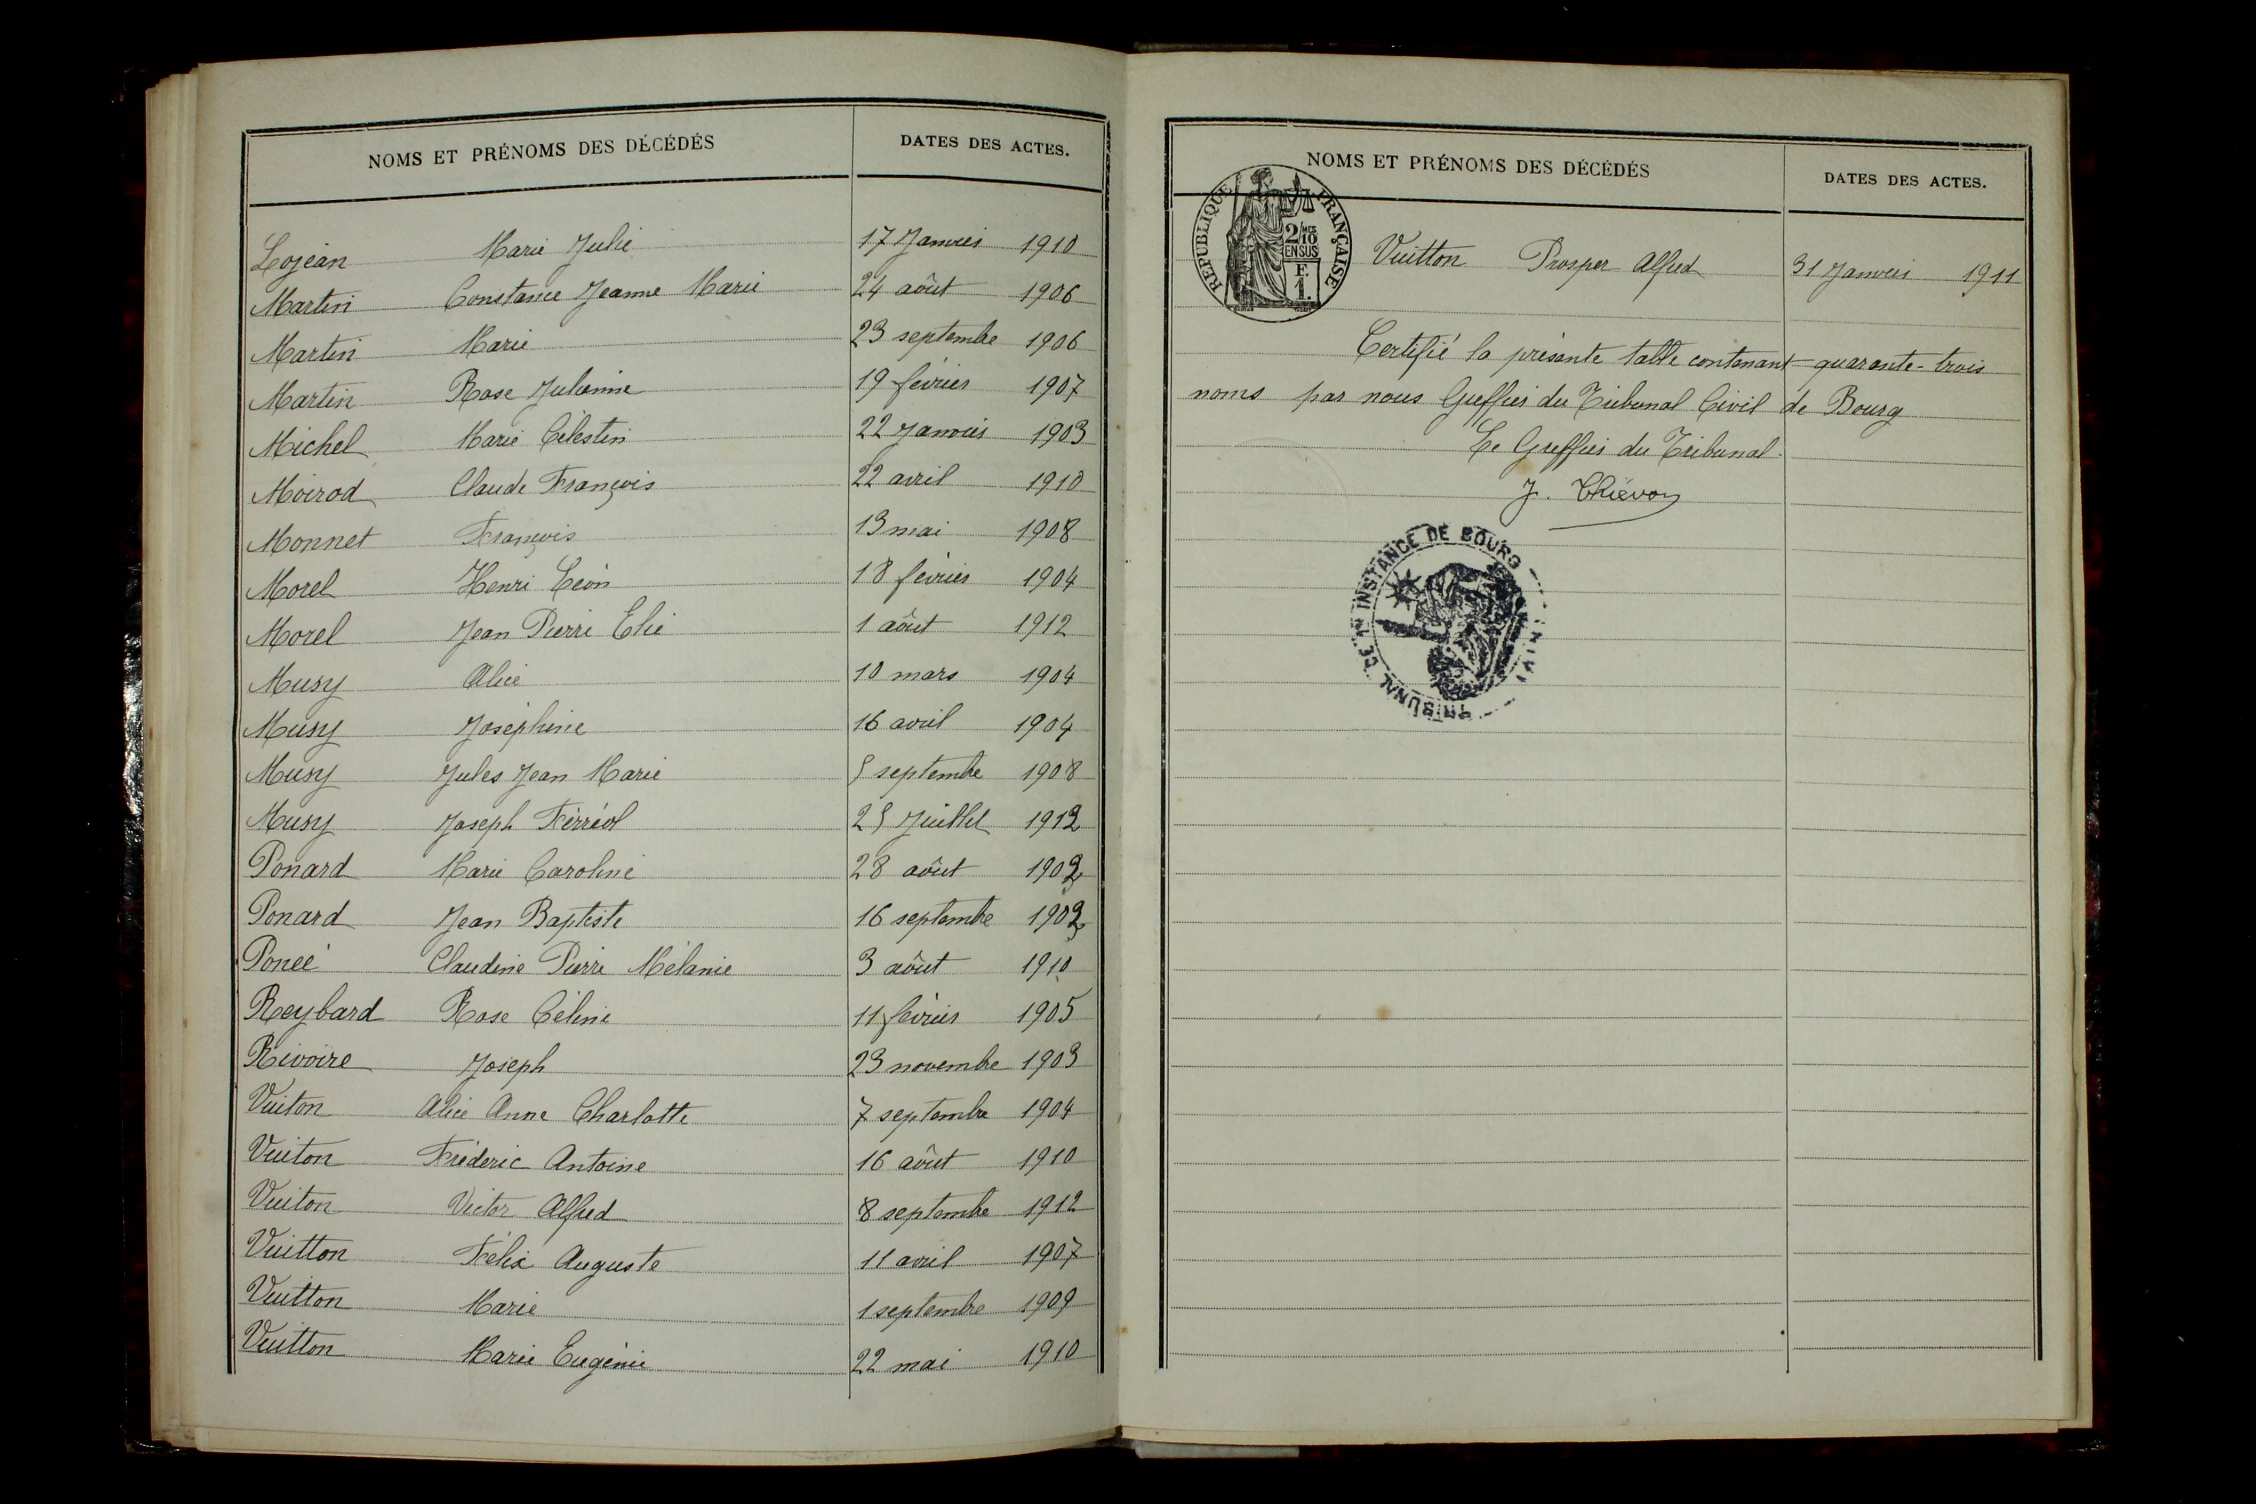 NOMS ET PRÉNOMS DES DÉCÉDÉS DATES DES ACTES.
Lojean Marie Julie 17 Janvier 1910
Martin Constance Jeanne Marie 24 août 1906
Martin Marie 23 septembre 1906
Martin Rose Julienne 19 février 1907
Michel Marie Célestin 22 Janvier 1903
Moirod Claude François 22 avril 1910
Monnet François 13 mai 1908
Morel Henri Léon 18 février 1904
Morel Jean Pierre Elie 1 août 1912
Musy Alice 10 mars 1904
Musy Joséphine 16 avril 1904
Musy Jules Jean Marie 5 septembre 1908
Musy Joseph Ferréol 25 Juillet 1912
Ponard Marie Caroline 28 août
Ponard Jean Baptiste 16 septembre
Poncé Claudine Pierre Mélanie 3 août 1910
Reybard Rose Céline 11 février 1905
Rivoire Joseph 23 novembre 1903
Vuiton Alice Anne Charlotte 7 septembre 1904
Vuiton Frédéric Antoine 16 août 1910
Vuiton Victor Alfred 8 septembre 1912
Vuitton Félix Auguste 11 avril 1907
Vuitton Marie 1 septembre 1909
Vuitton Marie Eugénie 22 mai 1910
NOMS ET PRÉNOMS DES DÉCÉDÉS DATES DES ACTES.
REPUBLIQUE FRANÇAISE
2/10
EN SUS
F.
1.
Vuitton Prosper Alfred 31 Janvier 1911
Certifié la présente table contenant quarante-trois
noms par nous Greffier du Tribunal Civil de Bourg
Le Greffier du Tribunal.
J. Thiévon
TRIBUNAL DE 1re INSTANCE DE BOURG